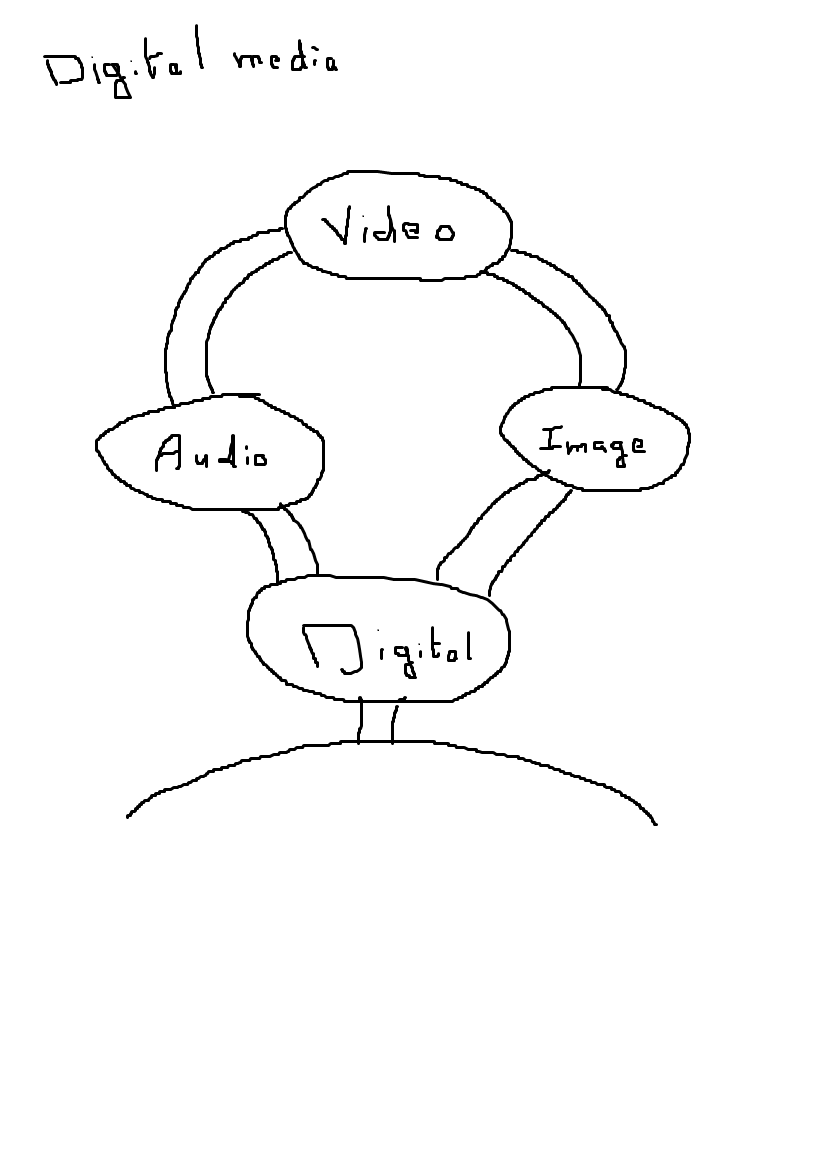 Digital media
Video
Audio
Image
Digital